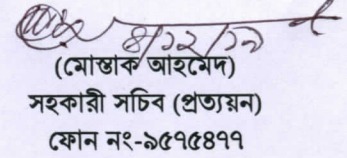 ৪/১২/১৯
(মোস্তাক আহমেদ)
সহকারী সচিব (প্রত্যয়ন)
ফোন নং-৯৫৭৫৪৭৭